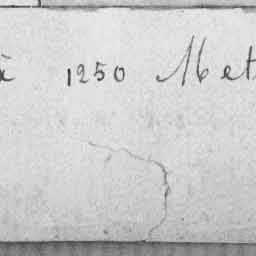 à 1250 Met